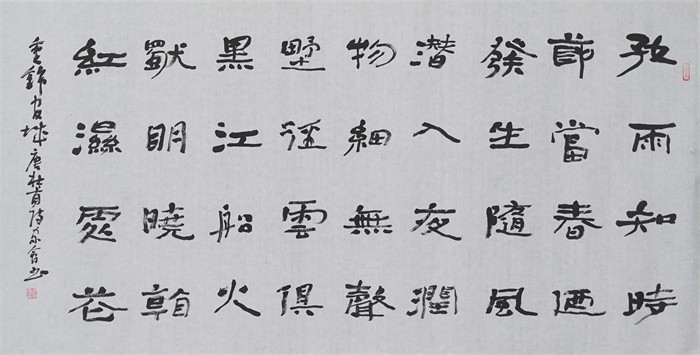 好雨知時
節當春迺
發生隨風
潛入夜潤
物細無聲
野徑雲俱
黑江船火
獨明曉看
紅濕處花
重錦官城唐杜甫詩